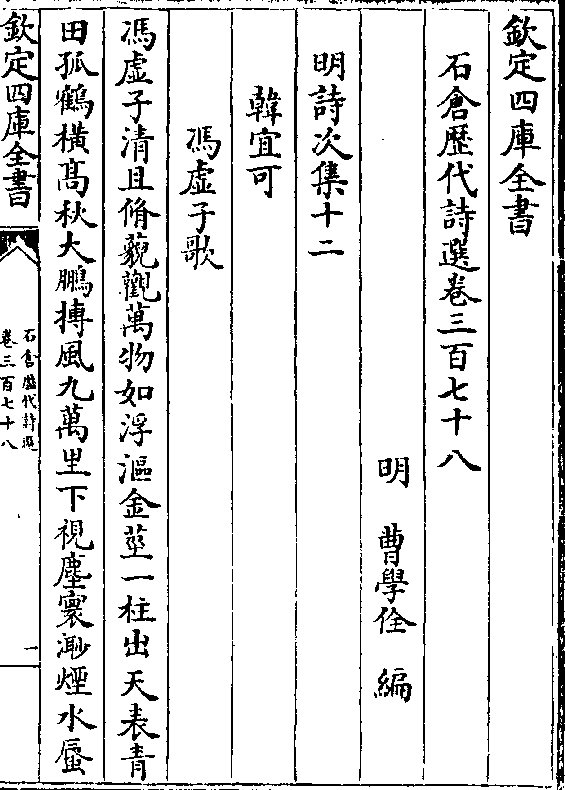 欽定四庫全書
石倉歴代詩選卷三百七十八
明　曹學佺　編
明詩次集十二
韓宜可
馮虛子歌
馮虛子清且脩藐觀萬物如浮漚金莖一柱出天表青
田孤鶴橫髙秋大鵬摶風九萬里下視塵寰渺煙水蜃
欽定四庫全書
石倉歴代詩選
卷三百七十八
一